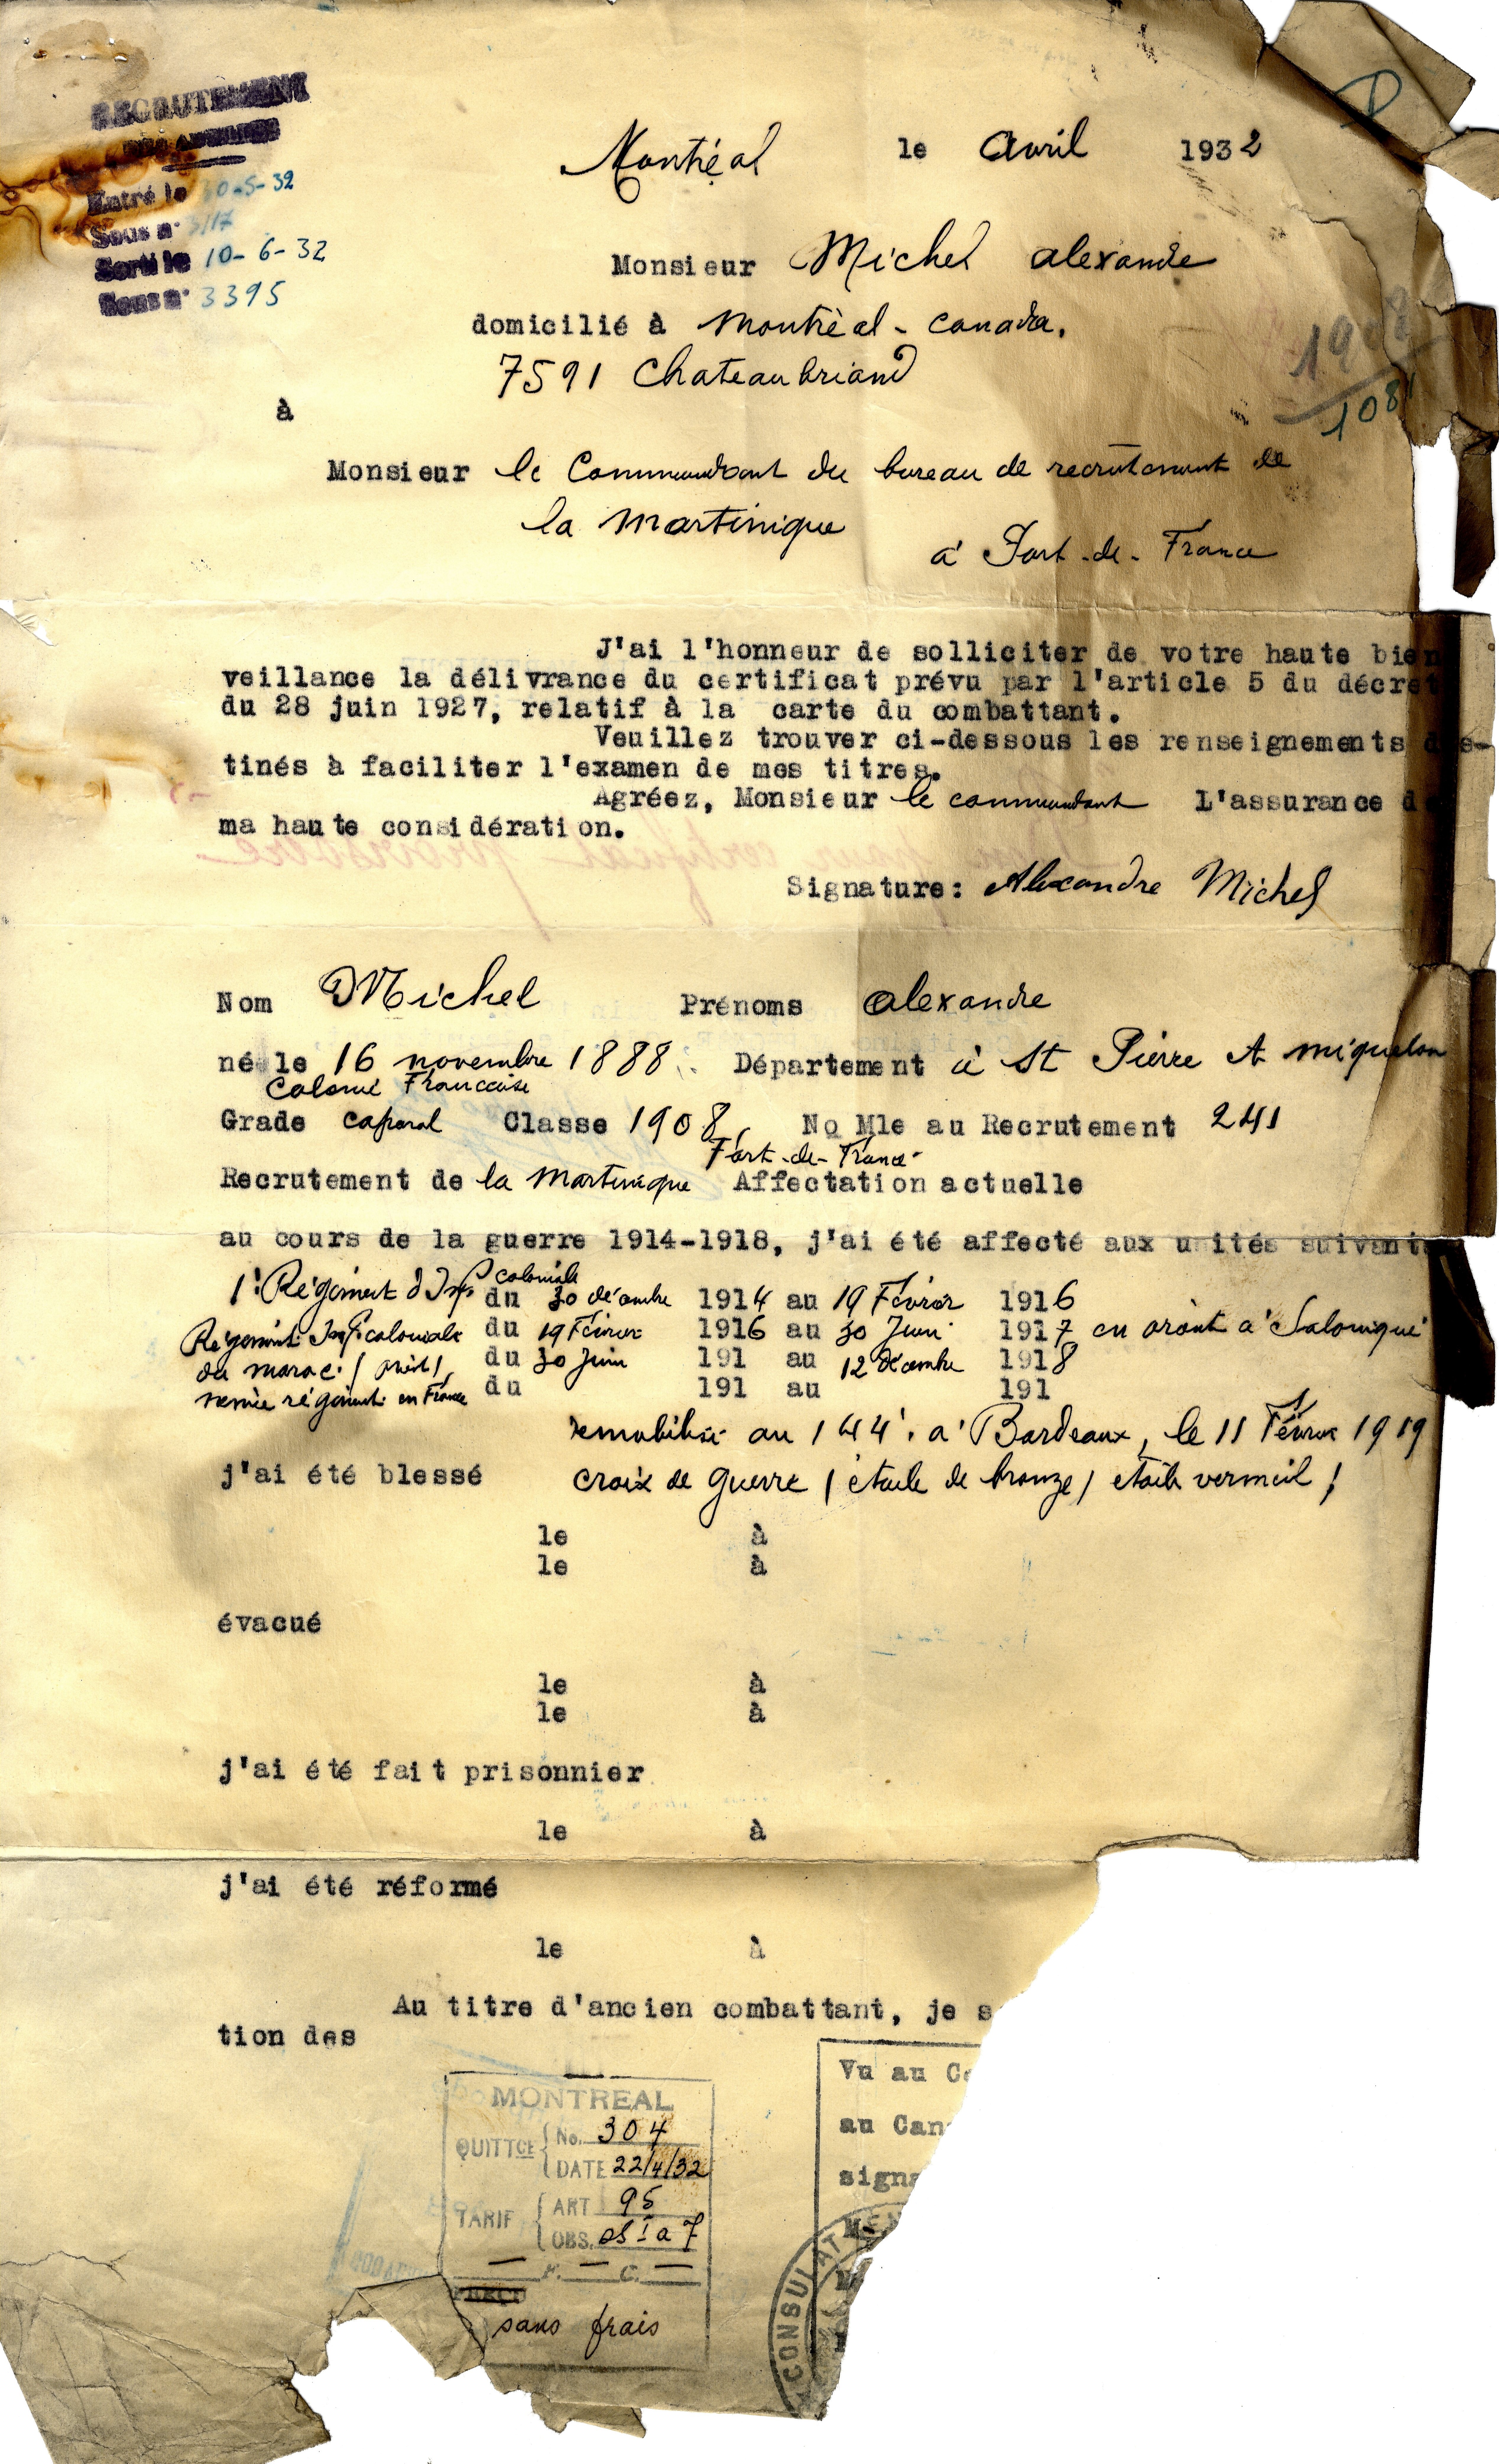 RECRUTEMENT
DES ANTILLES
Entré le 10-5-32
Sous n° 3117
Sorti le 10-6-32
Sous n° 3395
Montréal le Avril 1932
Monsieur Michel Alexandre
domicilié à Montréal - Canada.
7591 Chateaubriand
1908
1081
à
Monsieur le Commandant du bureau de recrutement de
la Martinique
à Fort-de-France
J'ai l'honneur de solliciter de votre haute bien
veillance la délivrance du certificat prévu par l'article 5 du décret
du 28 juin 1927, relatif à la carte du combattant.
Veuillez trouver ci-dessous les renseignements des-
tinés à faciliter l'examen de mes titres.
Agréez, Monsieur le commandant L'assurance de
ma haute considération.
Signature: Alexandre Michel
Nom Michel Prénoms Alexandre
né le 16 novembre 1888. Département à St Pierre et Miquelon
Colonie Francaise
Grade caporal Classe 1908 No Mle au Recrutement 241
Fort-de-France
Recrutement de la Martinique Affectation actuelle
au cours de la guerre 1914-1918, j'ai été affecté aux unités suivant
1r Régiment d'Inf coloniale du 30 décembre 1914 au 19 Février 1916
Régiment Inf. coloniale du 19 Février 1916 au 30 Juin 1917 en orient à Salonique
du maroc du 30 Juin 191 au 12 Décembre 1918
régiment en France du 191 au 191
démobilisé au 144e à Bordeaux, le 11 Février 1919
j'ai été blessé croix de guerre / étoile de bronze / étoile vermeil /
le à
le à
évacué
le à
le à
j'ai été fait prisonnier
le à
j'ai été réformé
le à
Au titre d'ancien combattant, je s
tion des
Vu au Co
au Can
signa
MONTREAL
QUITTCE No. 304
DATE 22/4/32
TARIF ART 95
OBS.
F. C.
sans frais
CONSULAT